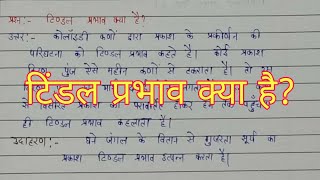 प्रश्न:- टिण्डल प्रभाव क्या है?
उत्तर:- कोलॉइडी कणों द्वारा प्रकाश के प्रकीर्णन की
परिघटना को टिण्डल प्रभाव कहते हैं। कोई प्रकाश
पुंज ऐसे महीन कणों से टकराता है। तो उस
टिंडल प्रभाव क्या है?
ही टिण्डल प्रभाव कहलाता है।
उदाहरण:- घने जंगल के वितान से गुजरता सूर्य का
प्रकाश टिण्डल प्रभाव उत्पन्न करता है।